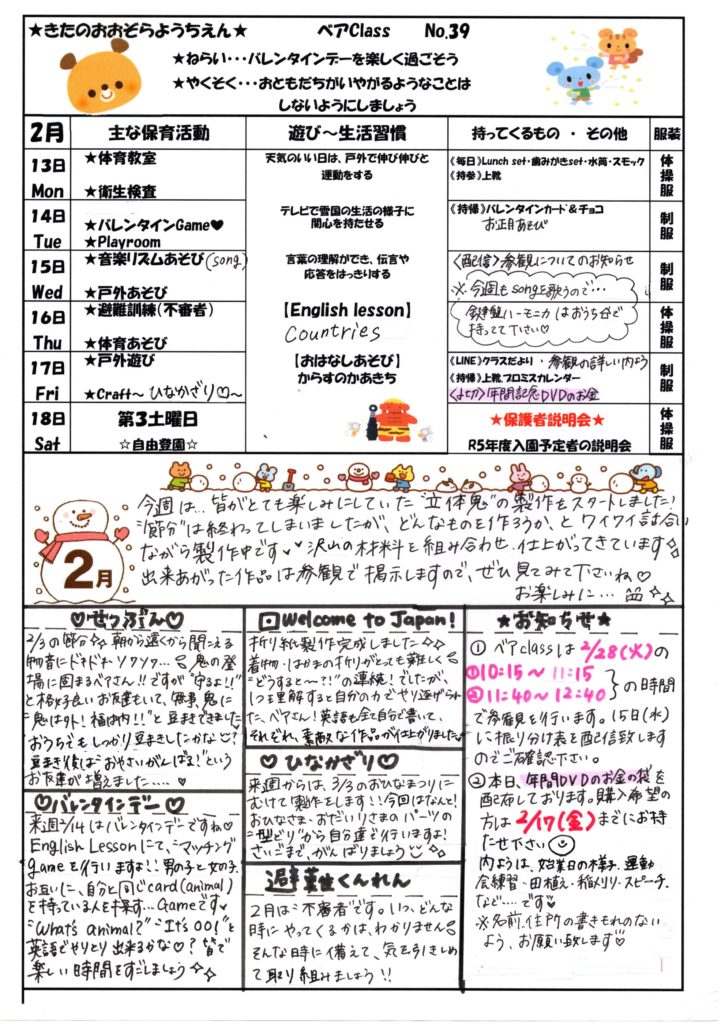 ★きたのおおぞらようちえん★
ベアClass No.39
★ねらい・・・バレンタインデーを楽しく過ごそう
★やくそく・・・おともだちがいやがるようなことは
しないようにしましょう
2月 主な保育活動 遊び～生活習慣 持ってくるもの・その他 服装
13日 Mon
★体育教室
★衛生検査
天気のいい日は、戸外で伸び伸びと
運動をする
《毎日》Lunch set・歯みがきset・水筒・スモック
《持参》上靴
体操服
14日 Tue
★バレンタインGame♥
★Playroom
テレビで雪国の生活の様子に
関心を持たせる
《持帰》バレンタインカード&チョコ
お正月あそび
制服
15日 Wed
★音楽リズムあそび(song)
★戸外あそび
言葉の理解ができ、伝言や
応答をはっきりする
〈配信〉参観についてのお知らせ
※今週もsongを歌うので…
制服
16日 Thu
★避難訓練(不審者)
★体育あそび
【English lesson】
Countries
鍵盤ハーモニカはおうち分で
持ってて下さい♡
体操服
17日 Fri
★戸外遊び
★Craft～ひなかざり♡～
【おはなしあそび】
からすのかあきち
《LINE》クラスだより・参観の詳しい内よう
《持帰》上靴、プロミスカレンダー
〈〆切〉年間記念DVDのお金
制服
18日 Sat
第3土曜日
☆自由登園☆
★保護者説明会★
R5年度入園予定者の説明会
体操服
2月
今週は…皆がとても楽しみにしていた"立体鬼"の製作をスタートしました!
"節分"は終わってしまいましたが、どんなものを作ろうか、とワイワイ話し合い
ながら製作中です♥♥沢山の材料を組み合わせ、仕上がってきています
出来あがった作品は参観で掲示しますので、ぜひ見てみて下さいね♡
お楽しみに…
♡せつぶん♡
2/3の節分☆朝から遠くから聞こえる
物音にドキドキソワソワ…鬼の登
場に固まるベアさん!!ですが"守るよ!!"
と格好良いお友達もいて、無事、鬼に
"鬼は外!福は内!!"と豆まきできました
おうちでもしっかり豆まきしたかな?
豆まき後は"おやさいがんばる"という
お友達が増えました…♡
♡バレンタインデー♡
来週2/14はバレンタインデーですね♡
English Lessonにて、"マッチング
game"を行いますよ!!男の子と女の子、
お互いに、自分と同じcard(animal)
を持っている人を探す…Gameです
"What's animal?" "It's OO!"と
英語でやりとり出来るかな♡?皆で
楽しい時間をすごしましょう
Welcome to Japan!
折り紙製作完成しました
着物・はかまの折りがとっても難しく
"どうする～?!"の連続!でしたが、
1つを理解すると自分の力でやり遂げられ
た、ベアさん!英語も全て自分で書いて、
それぞれ、素敵な作品が仕上がりました。
♡ひなかざり♡
来週からは、3/3のおひなまつりに
むけて製作をします!!今回はなんと!
おひなさま・おだいりさまのパーツの
"型どり"から自分達で行いますよ!
さいごまで、がんばりましょう
避難くんれん
2月は"不審者"です。いつ、どんな
時にやってくるかは、わかりません
そんな時に備えて、気を引きしめ
て取り組みましょう!!
★お知らせ★
①ベアclassは2/28(火)の
①10:15～11:15
②11:40～12:40
の時間
で参観を行います。15日(水)
に振り分け表を配信致します
のでご確認下さい。
②本日、年間DVDのお金の袋を
配布しております。購入希望の
方は2/17(金)までにお持
たせ下さい
内ようは、始業日の様子、運動
会練習・田植え・稲刈り・スピーチ、
など…です♡
※名前、住所の書きもれのない
よう、お願い致します♡